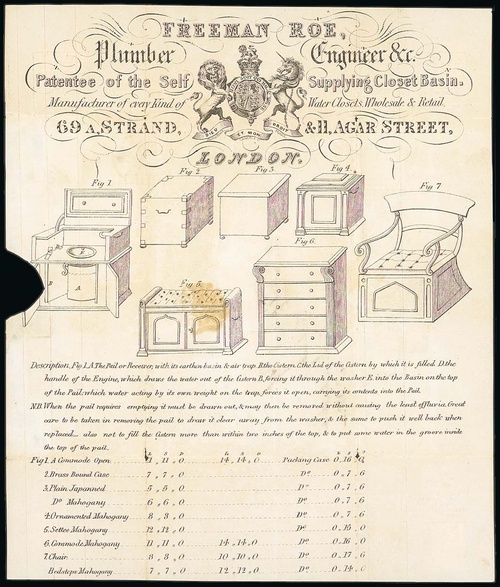 FREEMAN ROE,
Plumber Engineer &c.
Patentee of the Self Supplying Closet Basin.
Manufacturer of every kind of Water Closets, Wholesale & Retail.
69 A, STRAND, & 11, AGAR STREET,
DIEU ET MON DROIT
LONDON.
Fig 1 Fig 2 Fig 3. Fig 4. Fig 7
Fig. 5. Fig 6.
B A
Description, Fig 1, A The Pail or Receiver, with its earthen basin & air trap. B the Cistern. C the Lid of the Cistern by which it is filled. D. the
handle of the Engine, which draws the water out of the Cistern B, forcing it through the washer E. into the Basin on the top
of the Pail, which water acting by its own weight on the trap, forces it open, carrying its contents into the Pail.
N.B. When the pail requires emptying it must be drawn out, & may then be removed without causing the least effluvia. Great
care to be taken in removing the pail to draw it clear away from the washer, & the same to push it well back when
replaced... also not to fill the Cistern more than within two inches of the top, & to put some water in the groove inside
the top of the pail.
£ S D £ S D £ S D
Fig 1. A Commode Open 14, 14, 0 Packing Case 0, 16, 0
2. Brass Bound Case 7, 7, 0 Do 0, 7, 6
3. Plain Japanned 5, 5, 0 Do 0, 7, 6
Do Mahogany 6, 6, 0 Do 0, 7, 6
4. Ornamented Mahogany 8, 8, 0 Do 0, 7, 6
5. Settee Mahogany 12, 12, 0 Do 0, 15, 0
6. Commode Mahogany 11, 11, 0 14, 14, 0 Do 0, 16, 0
7. Chair 8, 8, 0 10, 10, 0 Do 0, 17, 6
Bedsteps Mahogany 7, 7, 0 12, 12, 0 Do 0, 14, 0